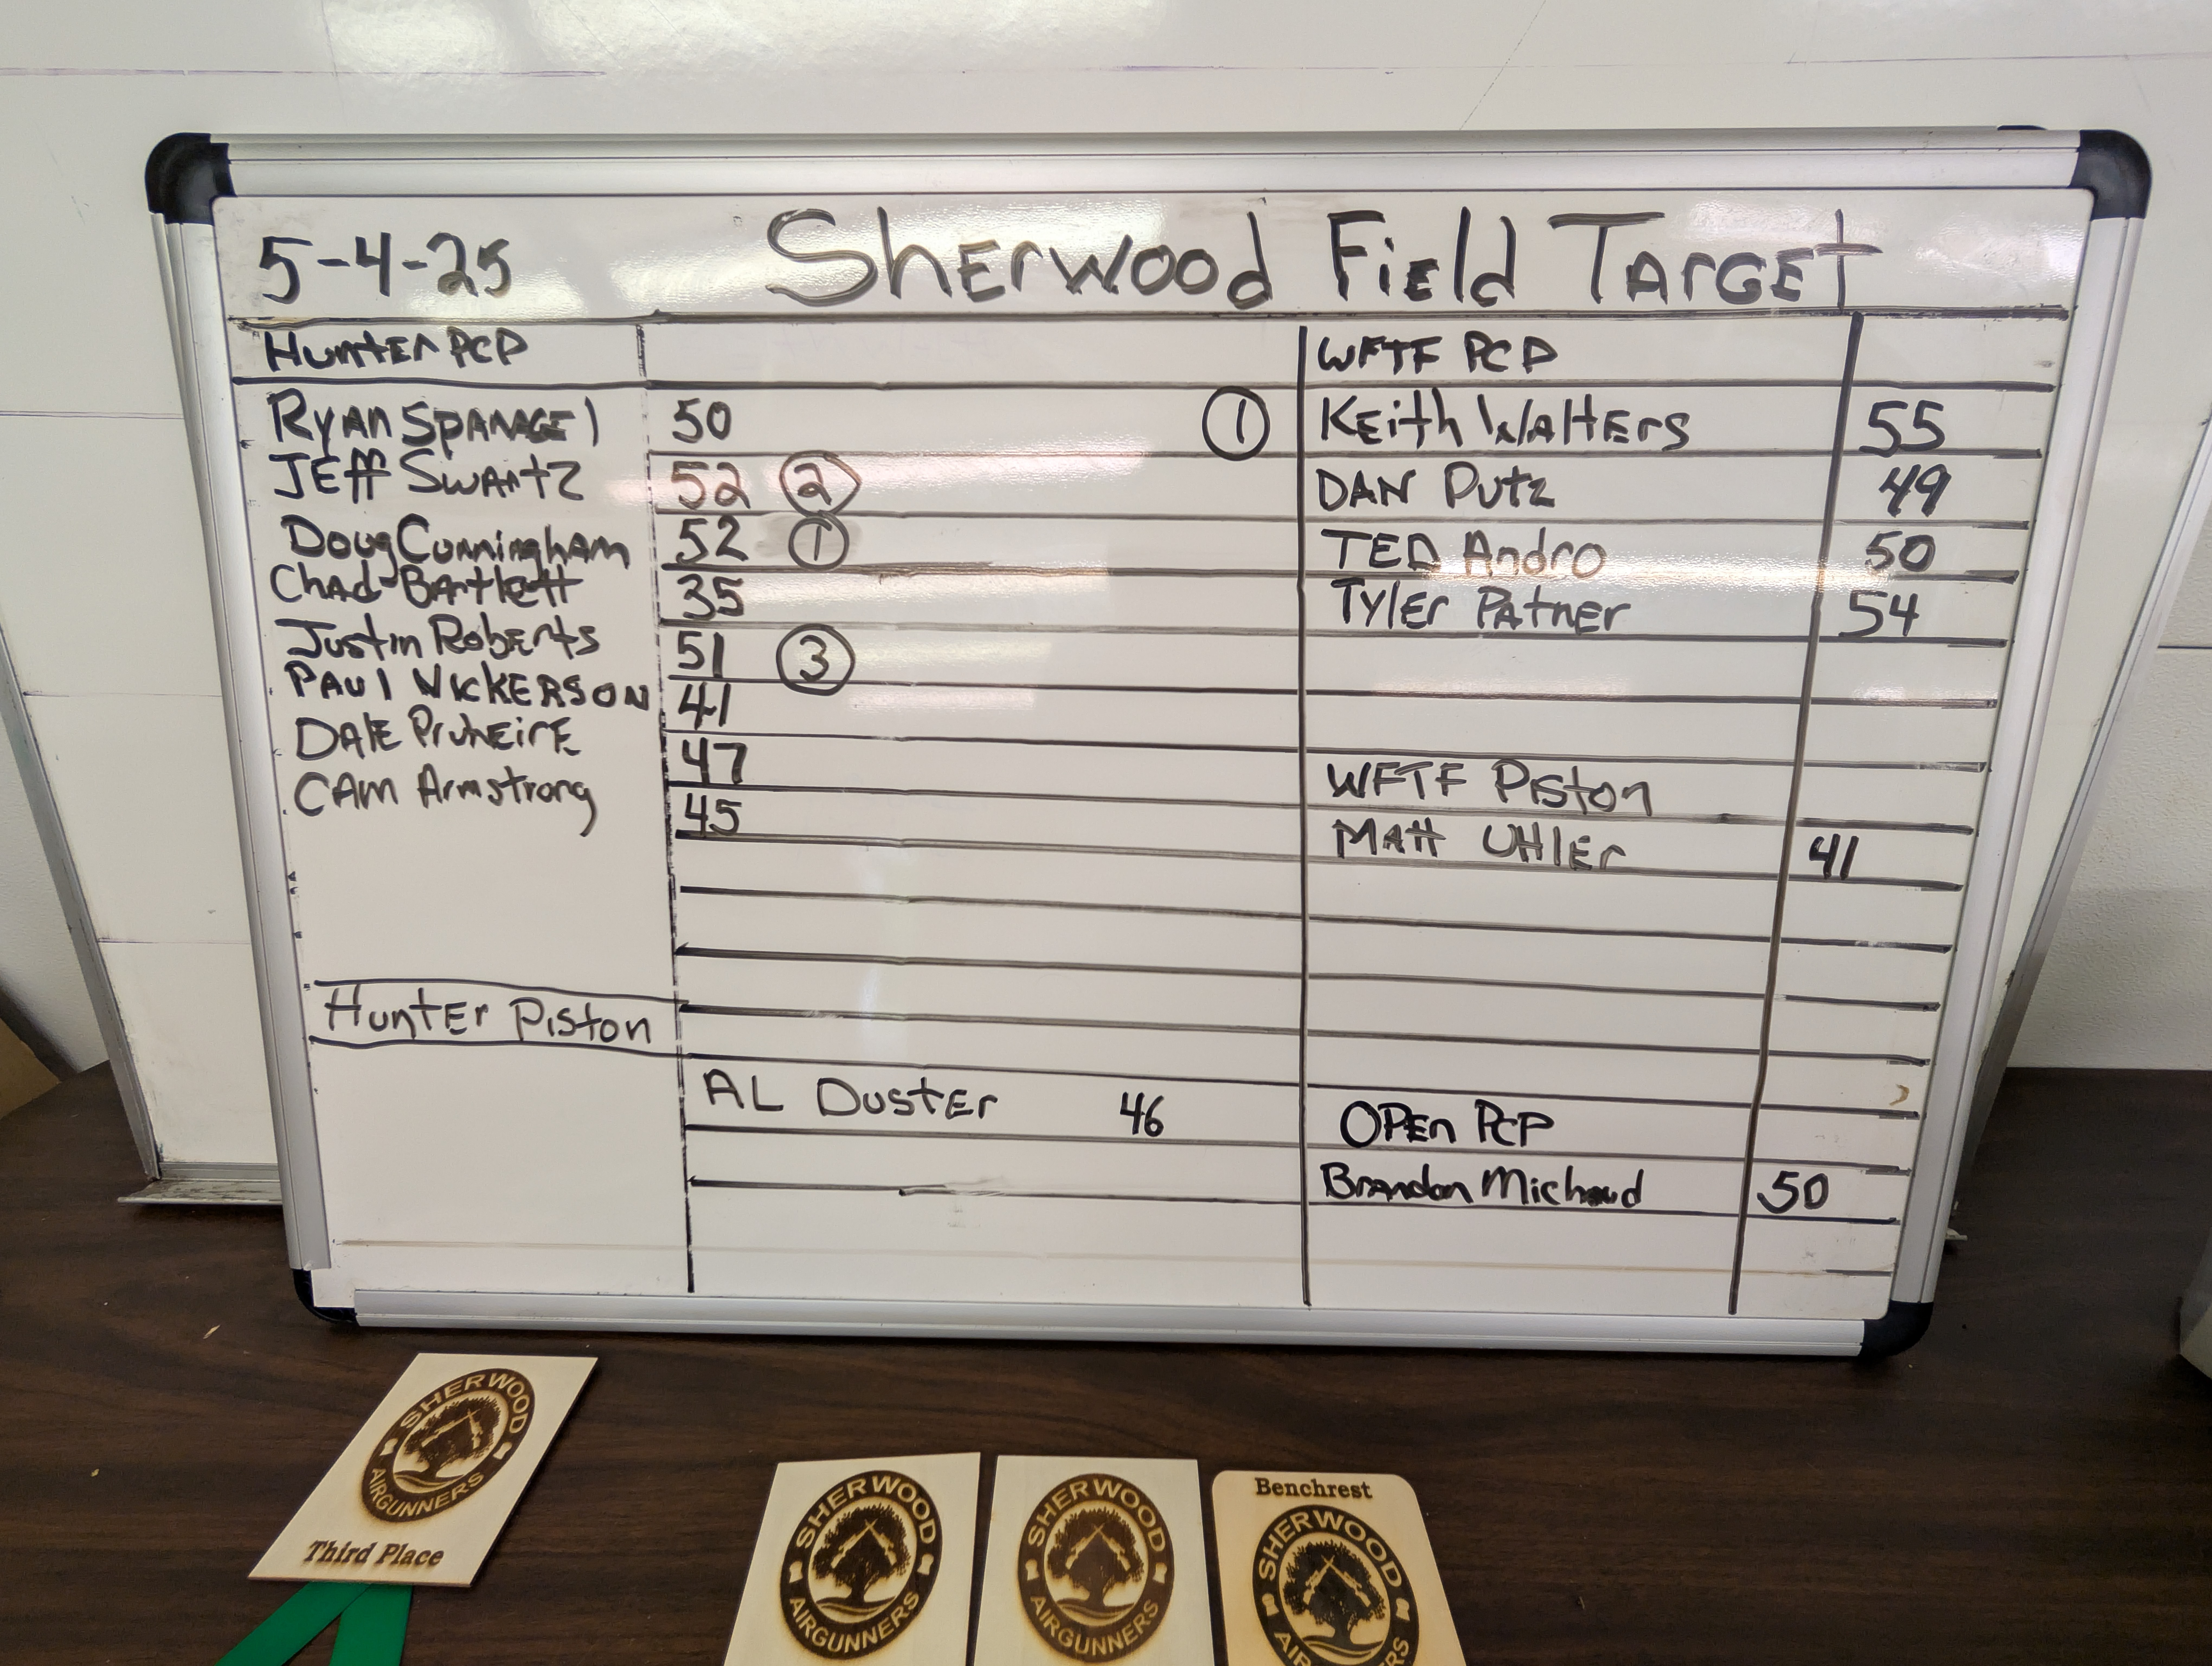 5-4-25 Sherwood Field Target
Hunter PCP
Ryan Spanagel 50
Jeff Swartz 52 2
Doug Cunningham 52 1
Chad Bartlett 35
Justin Roberts 51 3
Paul Nickerson 41
Dale 47
Cam Armstrong 45
Hunter Piston
AL Duster 46
WFTF PCP
1 Keith Walters 55
DAN Putz 49
TED Andro 50
Tyler Patner 54
WFTF Piston
Matt Uhler 41
OPEn PCP
Brandon Michaud 50
SHERWOOD
AIRGUNNERS
Third Place
SHERWOOD
AIRGUNNERS
SHERWOOD
AIRGUNNERS
Benchrest
SHERWOOD